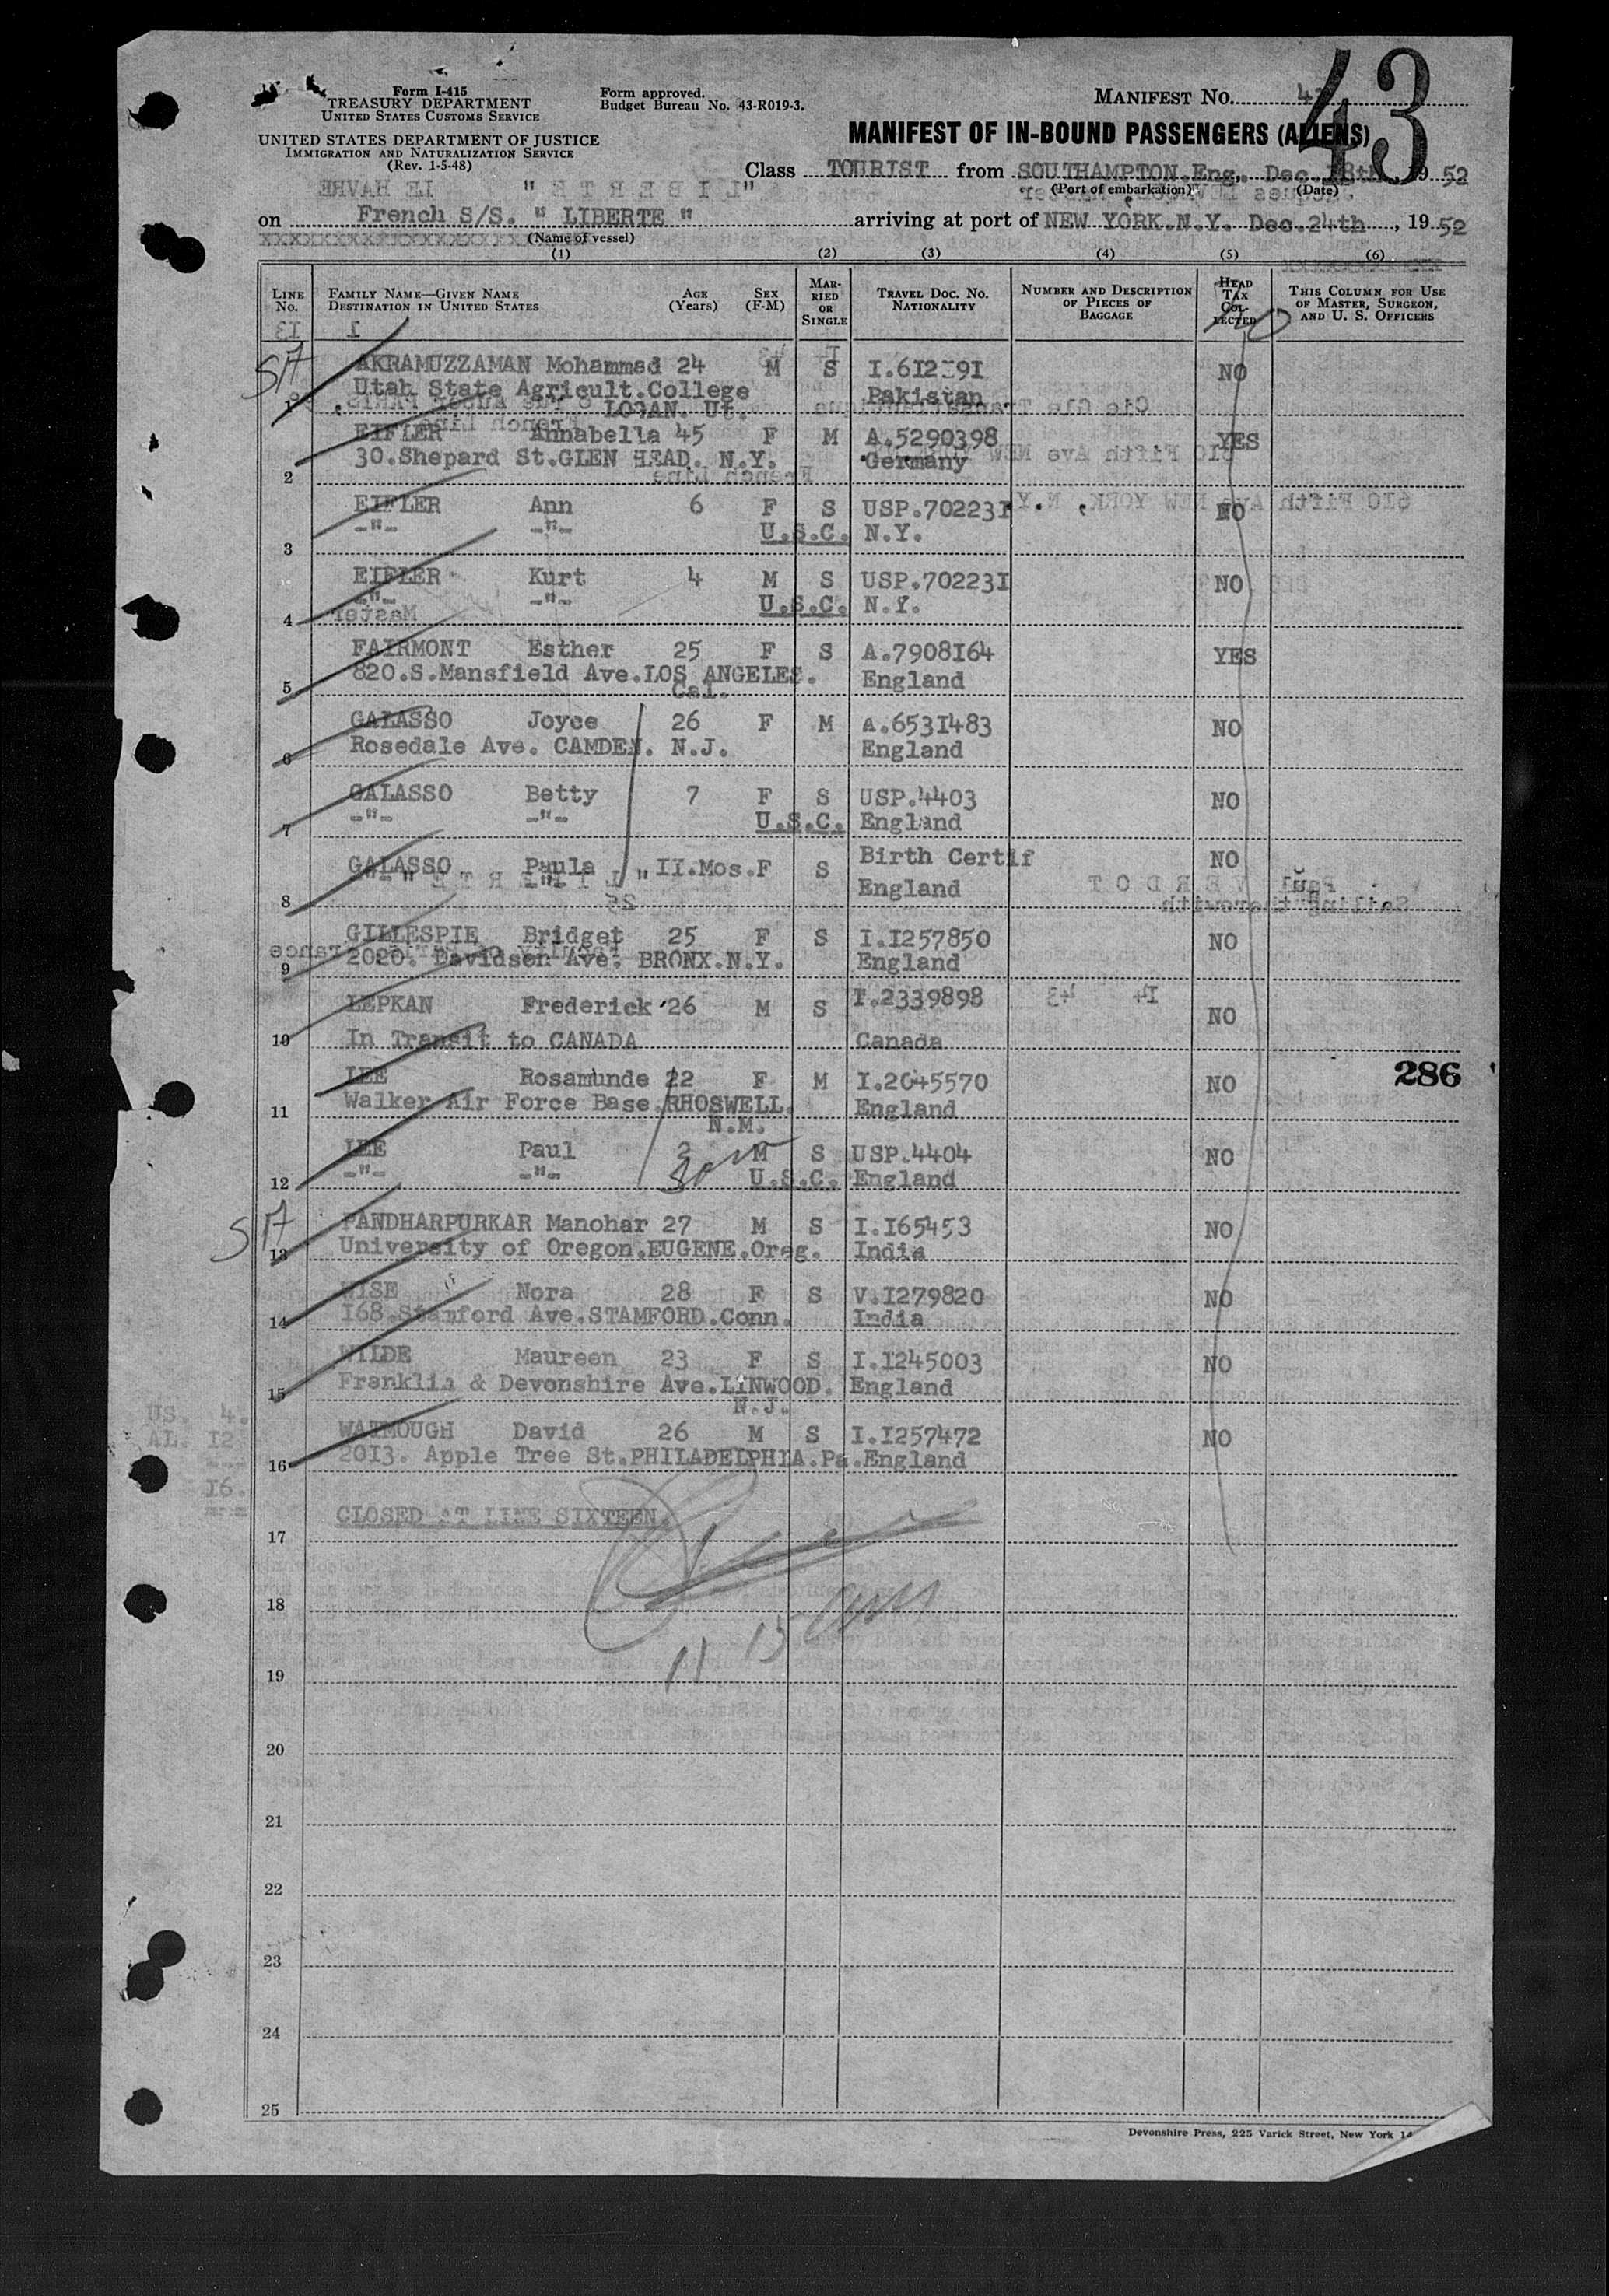 43
Form I-415
TREASURY DEPARTMENT
UNITED STATES CUSTOMS SERVICE
UNITED STATES DEPARTMENT OF JUSTICE
IMMIGRATION AND NATURALIZATION SERVICE
(Rev. 1-5-48)
Form approved.
Budget Bureau No. 43-R019-3.
MANIFEST No.
MANIFEST OF IN-BOUND PASSENGERS (ALIENS)
Class TOURIST from SOUTHAMPTON.Eng. Dec.18th 1952
(Port of embarkation) (Date)
on French S/S. " LIBERTE " arriving at port of NEW YORK.N.Y. Dec.24th, 1952
(Name of vessel)
(1) (2) (3) (4) (5) (6)
LINE No. FAMILY NAME—GIVEN NAME DESTINATION IN UNITED STATES AGE (Years) SEX (F-M) MARRIED OR SINGLE TRAVEL DOC. No. NATIONALITY NUMBER AND DESCRIPTION OF PIECES OF BAGGAGE HEAD TAX COLLECTED THIS COLUMN FOR USE OF MASTER, SURGEON, AND U. S. OFFICERS
AKRAMUZZAMAN Mohammed 24 M S NO
Utah State Agricult.College Pakistan
1 LOGAN. Ut.
EIFLER Annabella 45 F M A.5290398 YES
30.Shepard St.GLEN HEAD. N.Y. Germany
2
EIFLER Ann 6 F S USP.70223I NO
-"- -"- U.S.C. N.Y.
3
EIFLER Kurt 4 M S USP.70223I NO
-"- -"- U.S.C. N.Y.
4
FAIRMONT Esther 25 F S A.7908I64 YES
820.S.Mansfield Ave.LOS ANGELES. England
5 Cal.
GALASSO Joyce 26 F M A.653I483 NO
Rosedale Ave. CAMDEN. N.J. England
6
GALASSO Betty 7 F S USP.4403 NO
-"- -"- U.S.C. England
7
GALASSO Paula II.Mos.F S Birth Certif NO
England
8
GILLESPIE Bridget 25 F S I.I257850 NO
2020. Davidson Ave. BRONX.N.Y. England
9
LEPKAN Frederick 26 M S I.2339898 NO
10 In Transit to CANADA Canada
LEE Rosamunde 22 F M I.2045570 NO 286
Walker Air Force Base.RHOSWELL. England
11 N.M.
LEE Paul 2 M S USP.4404 NO
-"- -"- U.S.C. England
12
SA PANDHARPURKAR Manohar 27 M S I.I65453 NO
13 University of Oregon.EUGENE.Oreg. India
WISE Nora 28 F S V.I279820 NO
14 I68.Stamford Ave.STAMFORD.Conn. India
WILDE Maureen 23 F S I.I245003 NO
15 Franklin & Devonshire Ave.LINWOOD. England
N.J.
US. 4.
AL. I2
---
I6.
WATMOUGH David 26 M S I.I257472 NO
16 20I3. Apple Tree St.PHILADELPHIA.Pa.England
CLOSED AT LINE SIXTEEN.
17
18
19
20
21
22
23
24
25
Devonshire Press, 225 Varick Street, New York 14